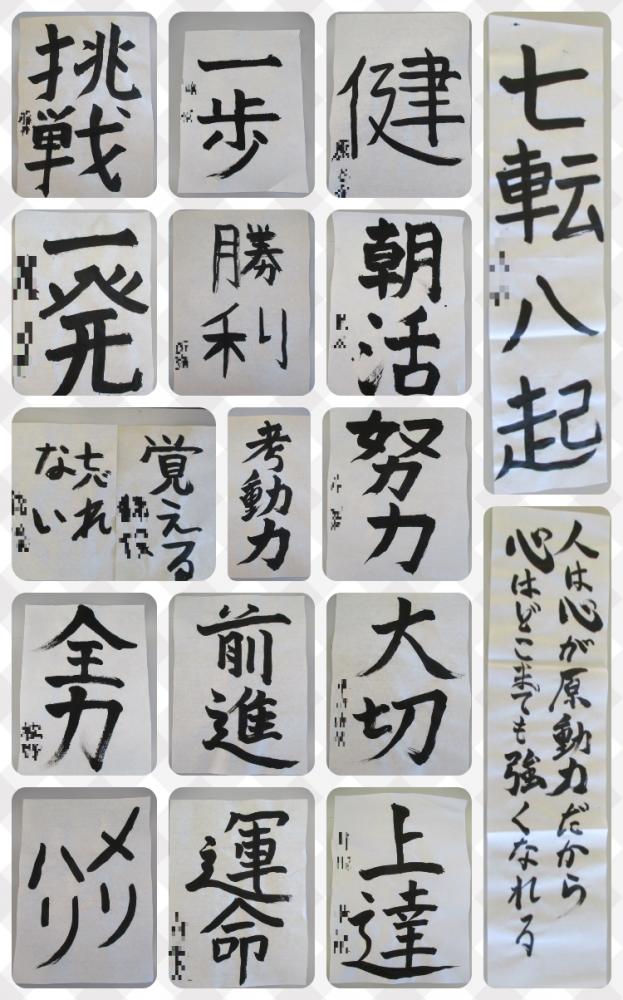 挑戦
一歩
健
七転八起
一発
勝利
朝活
覚える
忘れ
ない
考動力
努力
人は心が原動力だから
心はどこまでも強くなれる
全力
前進
大切
メリ
ハリ
運命
上達